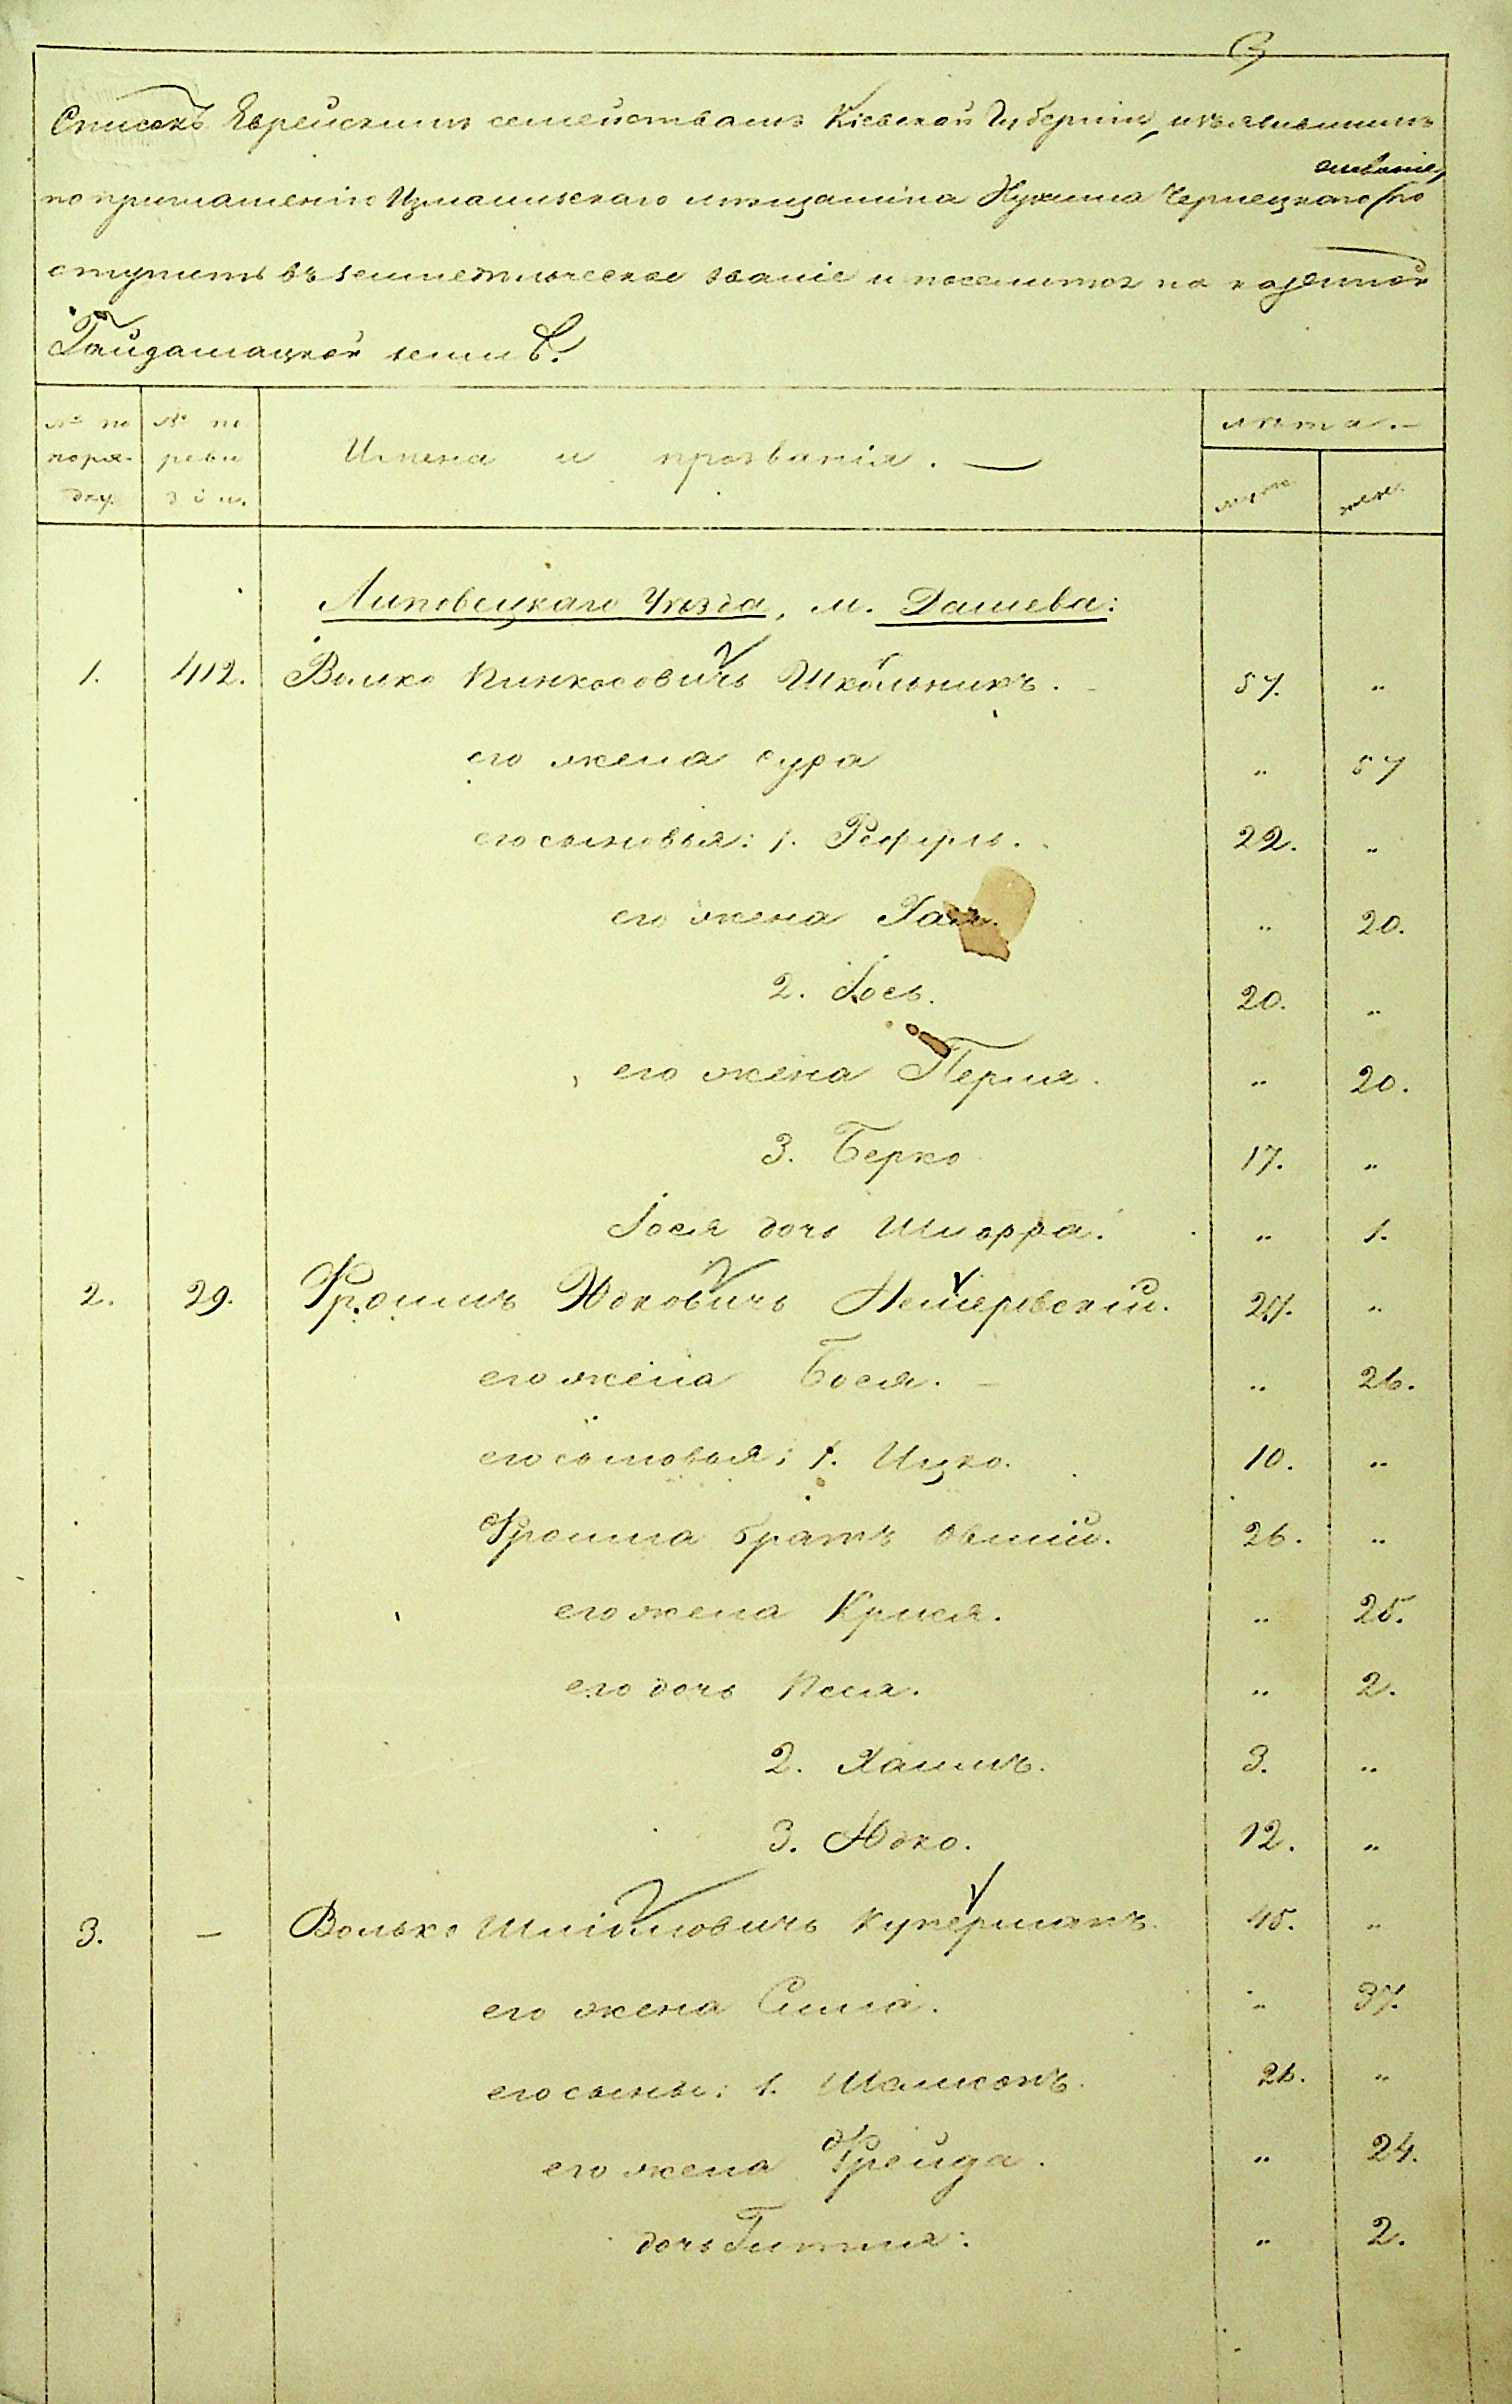 Списокъ Еврейскимъ семействамъ Кіевской Губерніи, изъявившимъ
желаніе,
по приглашенію Измаильскаго мѣщанина Нухима Чернецкаго по
ступить въ земледѣльческое званіе и поселится на казенной
Гайдамацкой землѣ.
№ по поря-дку.
№ по реви зіи.
Имена и прозванія. —
лѣта. —
муж.
жен.
Липовецкаго Уѣзда, м. Дашева:
1. 412. Волько Пинкасовичъ Школьникъ. 57. „
его жена Сура „ 57
его сыновья: 1. 22. „
его жена „ 20.
2. Іось. 20. „
его жена Перля. „ 20.
3. Берко 17. „
Іося дочь „ 1.
2. 29. Фроимъ Юдковичъ Немеровскій. 27. „
его жена Бося. — „ 26.
его сыновья: 1. Ицко. 10. „
Фроима братъ Овшій. 26. „
его жена Крися. „ 25.
его дочь Песя. „ 2.
2. Хаимъ. 3. „
3. Юдко. 12. „
3. — Волько Шліомовичъ Куперманъ. 45. „
его жена Сима. „ 37.
его сыны: 1. Шамсонъ. 26. „
его жена Фрейда. „ 24.
дочь Гитля. „ 2.